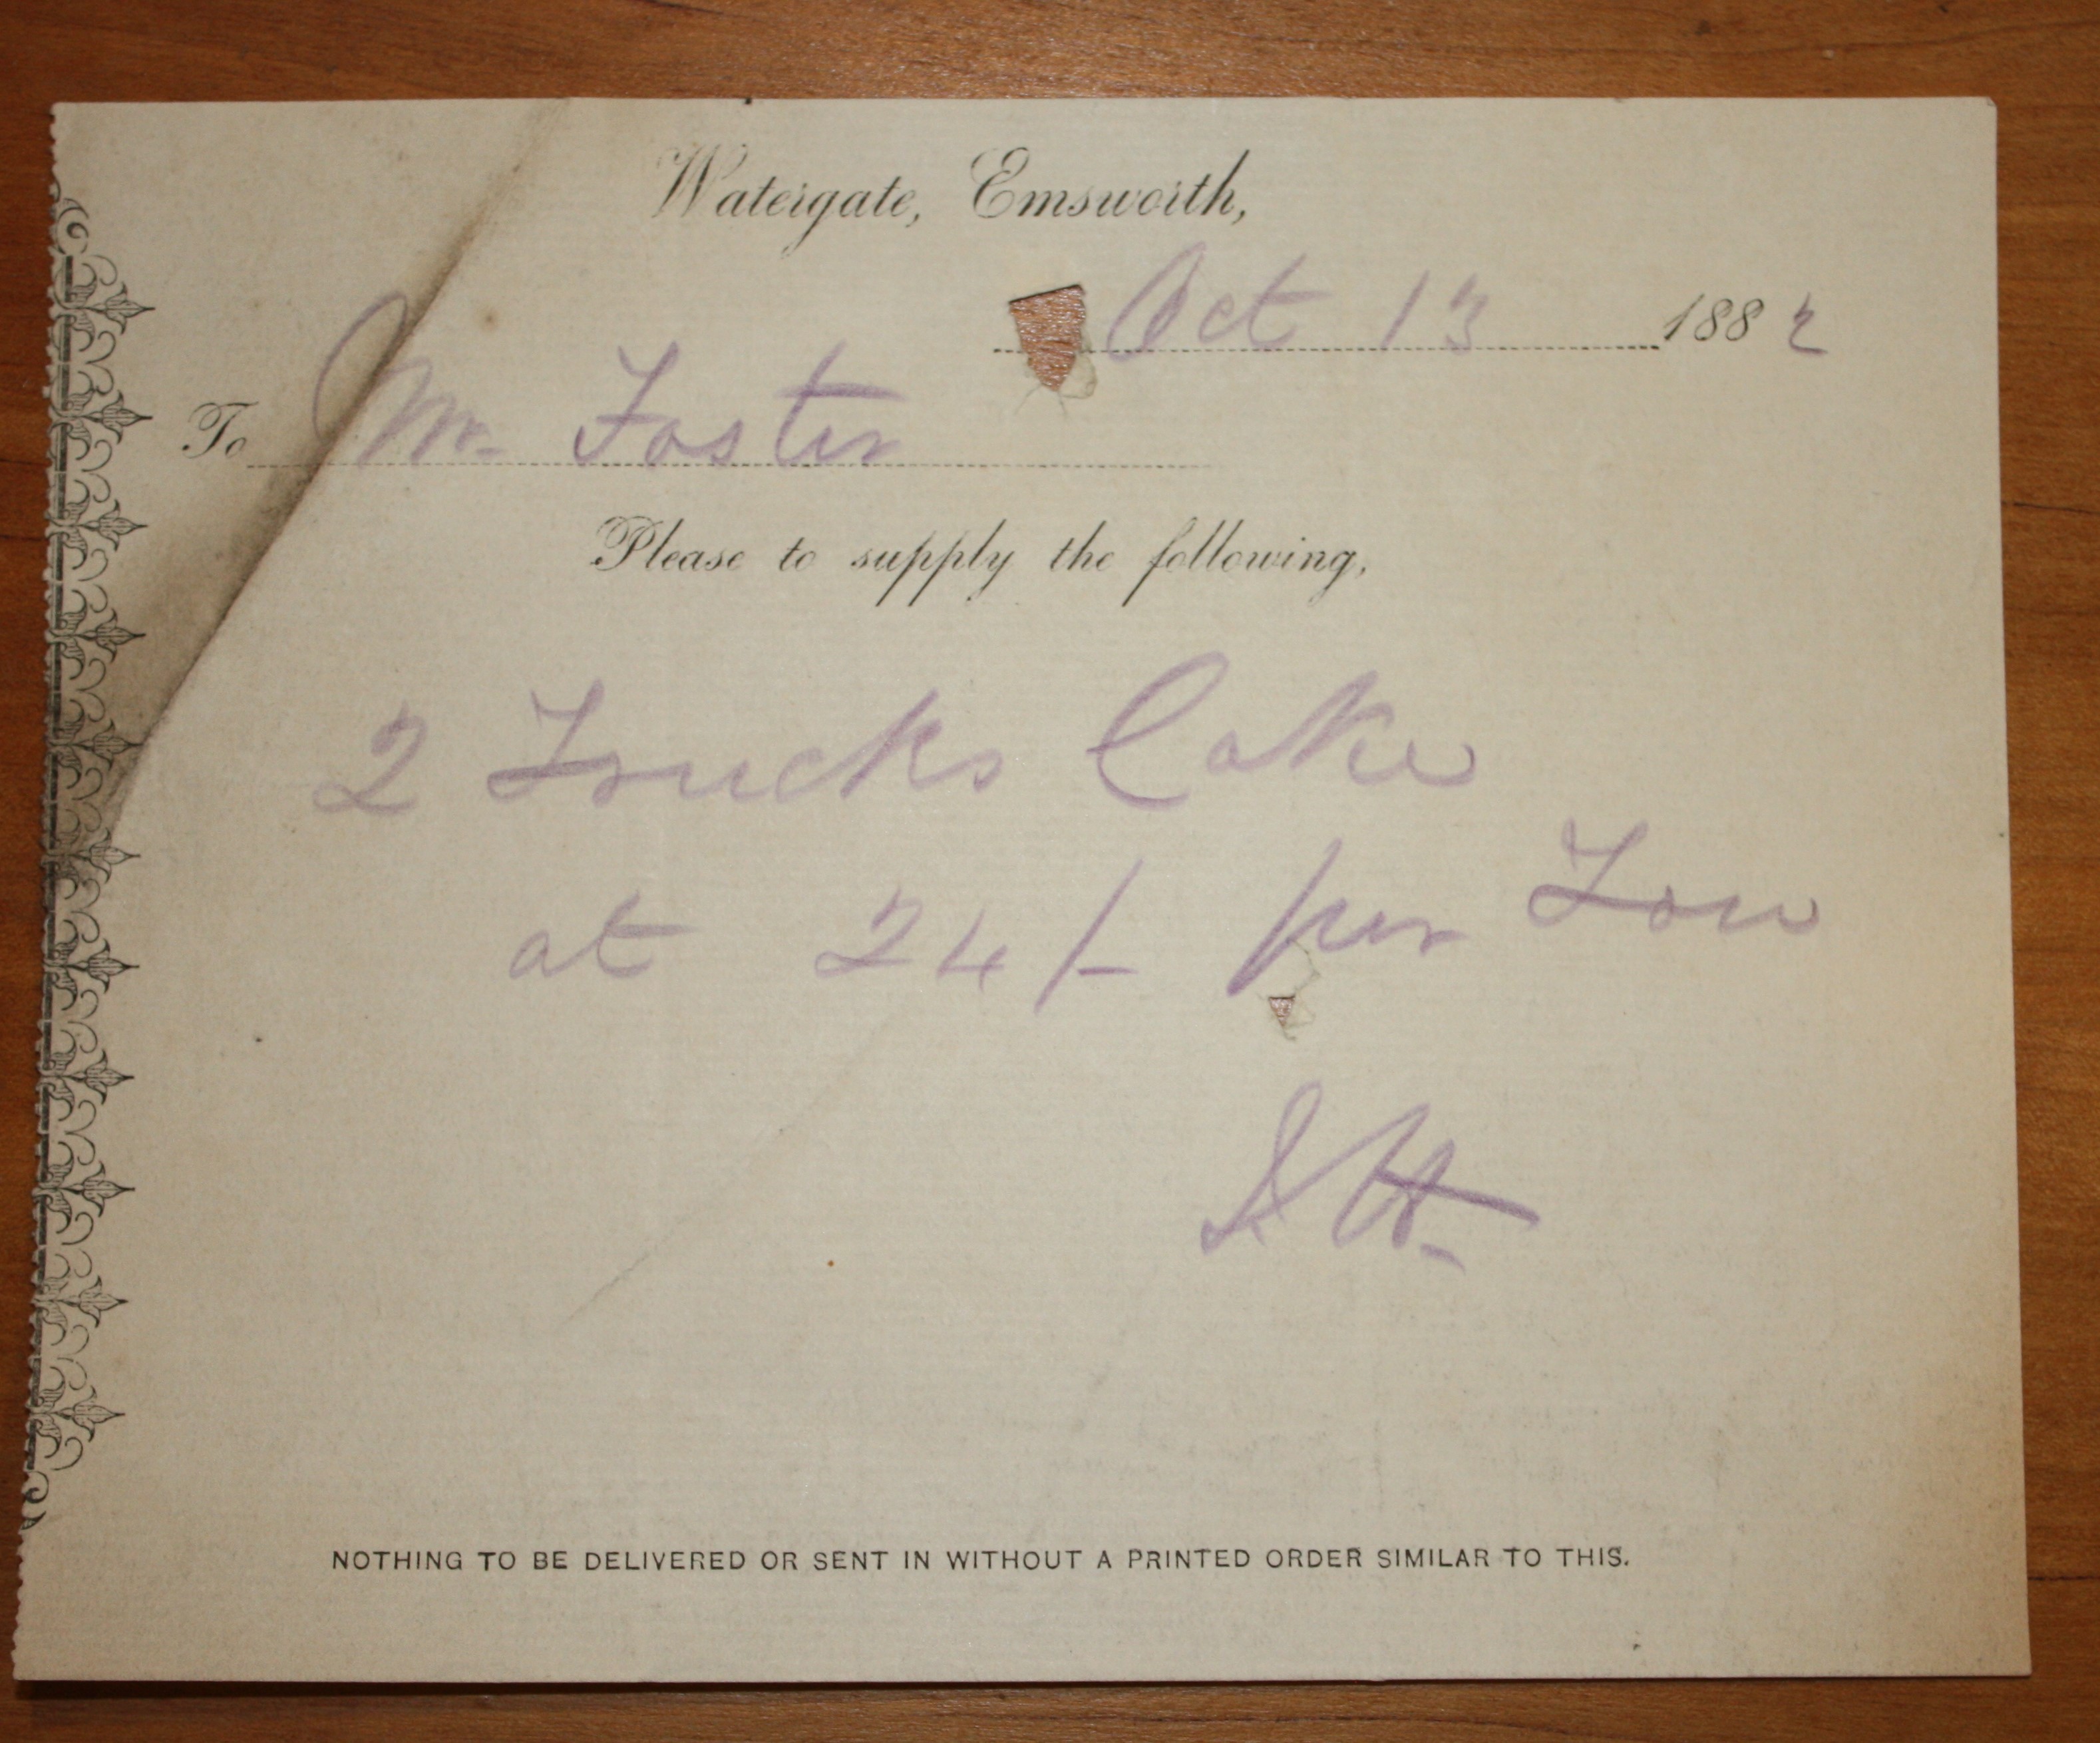 Watergate, Emsworth,
Oct 13 1882
To Mr. Foster
Please to supply the following,
2 Trucks Coke
at 24/- per Ton
NOTHING TO BE DELIVERED OR SENT IN WITHOUT A PRINTED ORDER SIMILAR TO THIS.